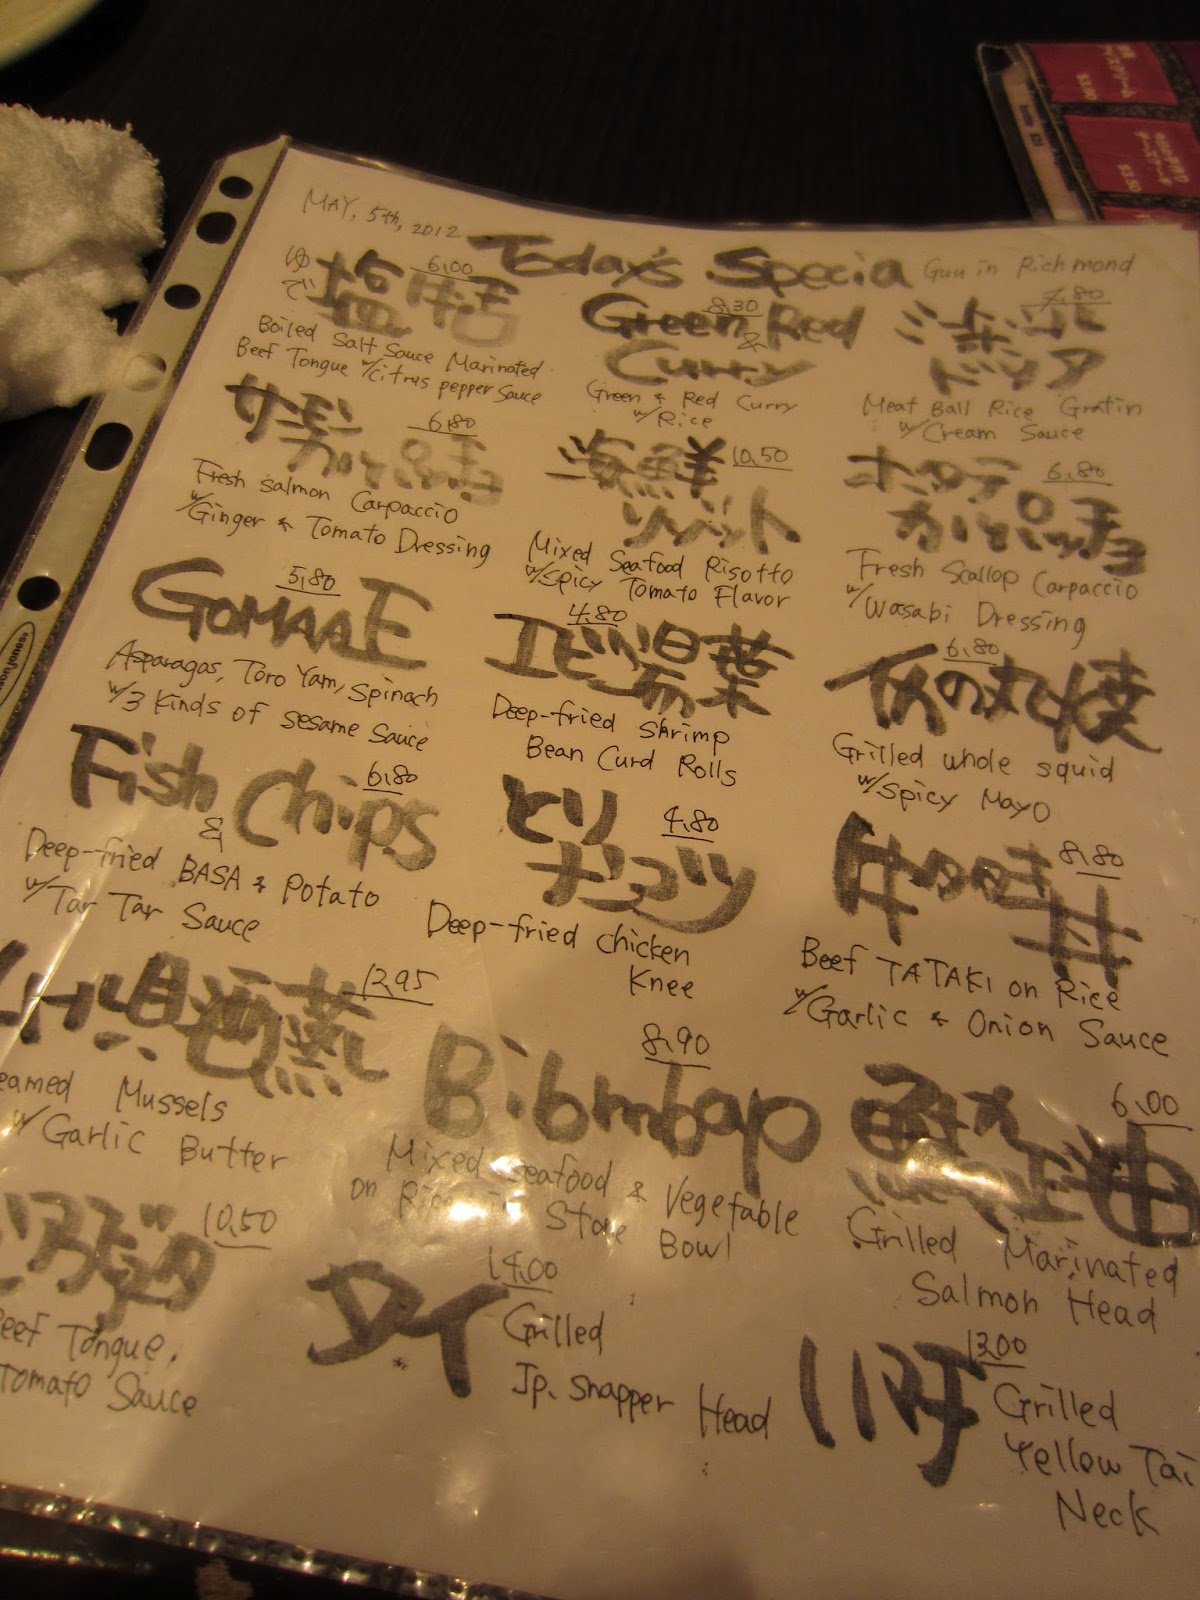 MAY, 5th, 2012
Today's Specia
Guu in Richmond
ゆで
塩
6.00
Boiled Salt Sauce Marinated
Beef Tongue w/citrus pepper Sauce
8.30
Green & Red
Curry
Green & Red Curry
w/Rice
7.80
Meat Ball Rice Gratin
w/Cream Sauce
サーモン
カルパッチョ
6.80
Fresh Salmon Carpaccio
w/Ginger & Tomato Dressing
海鮮
リゾット
10.50
Mixed Seafood Risotto
w/Spicy Tomato Flavor
ホタテ
カルパッチョ
6.80
Fresh Scallop Carpaccio
w/Wasabi Dressing
5.80
GOMAAE
Asparagas, Toro Yam, Spinach
w/3 Kinds of sesame Sauce
4.80
エビ湯葉
Deep-fried Shrimp
Bean Curd Rolls
6.80
の丸焼
Grilled whole squid
w/Spicy Mayo
Fish & Chips
6.80
Deep-fried BASA & Potato
w/Tar Tar Sauce
とり
ナンコツ
4.80
Deep-fried chicken
Knee
牛タタキ丼
8.80
Beef TATAKI on Rice
w/Garlic & Onion Sauce
ムール貝酒蒸
12.95
eamed Mussels
w/Garlic Butter
8.90
Bibmbap
Mixed Seafood & Vegetable
on Rice in Stone Bowl
6.00
Grilled Marinated
Salmon Head
10.50
eef Tongue,
Tomato Sauce
タイ
14.00
Grilled
Jp. Snapper Head
13.00
Grilled
Yellow Tai
Neck